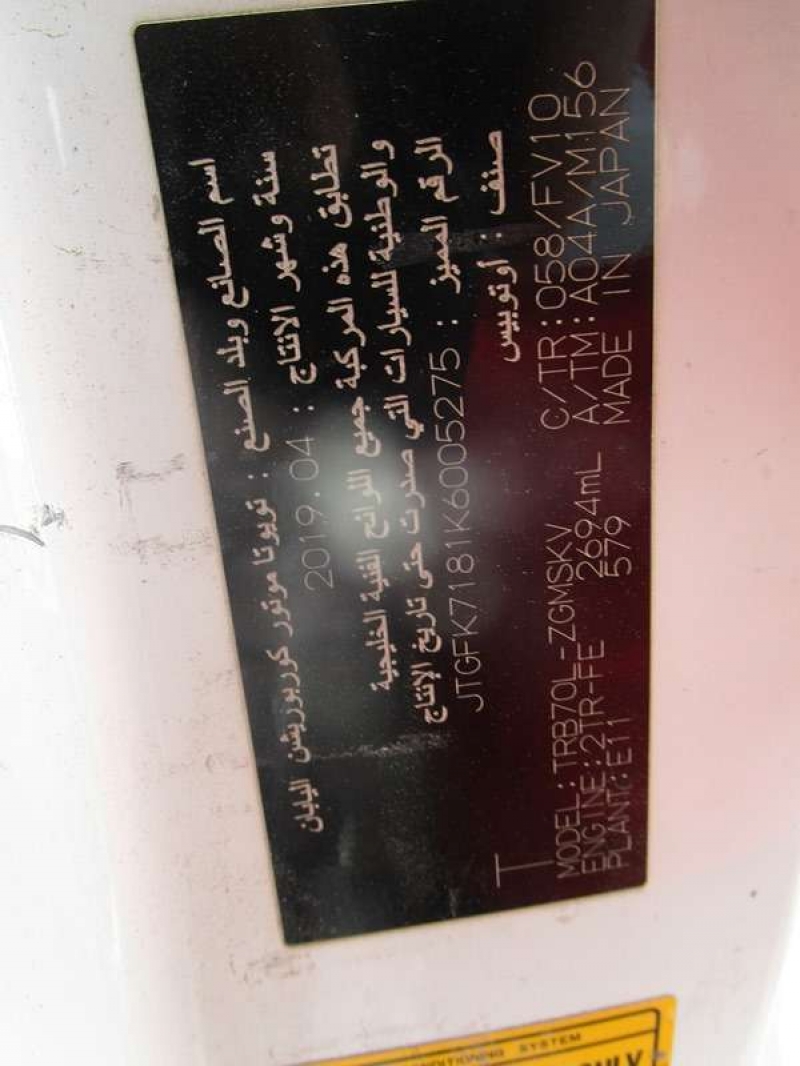 اسم الصانع وبلد الصنع : تويوتا موتور كوربوريشن اليابان
سنة وشهر الانتاج : 2019.04
تطابق هذه المركبة جميع اللوائح الفنية الخليجية
والوطنية للسيارات التي صدرت حتى تاريخ الإنتاج
الرقم المميز : JTGFK7181K6005275
صنف : أوتوبيس
T
MODEL:TRB70L-ZGMSKV C/TR:058/FV10
ENGINE:2TR-FE 2694mL A/TM:A04A/M156
PLANT:E11 579 MADE IN JAPAN
CONDITIONING SYSTEM
ONLY